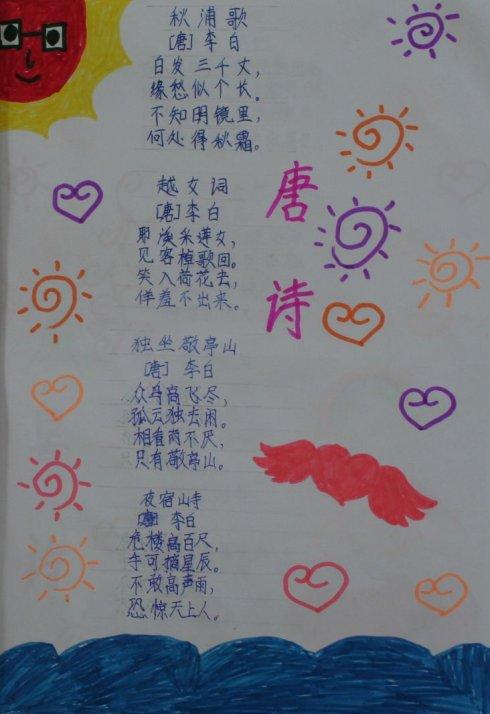 秋浦歌
[唐]李白
白发三千丈，
缘愁似个长。
不知明镜里，
何处得秋霜。
越女词
[唐]李白
耶溪采莲女，
见客棹歌回。
笑入荷花去，
佯羞不出来。
独坐敬亭山
[唐] 李白
众鸟高飞尽，
孤云独去闲。
相看两不厌，
只有敬亭山。
夜宿山寺
李白
危楼高百尺，
手可摘星辰。
不敢高声雨，
恐惊天上人。
唐
诗